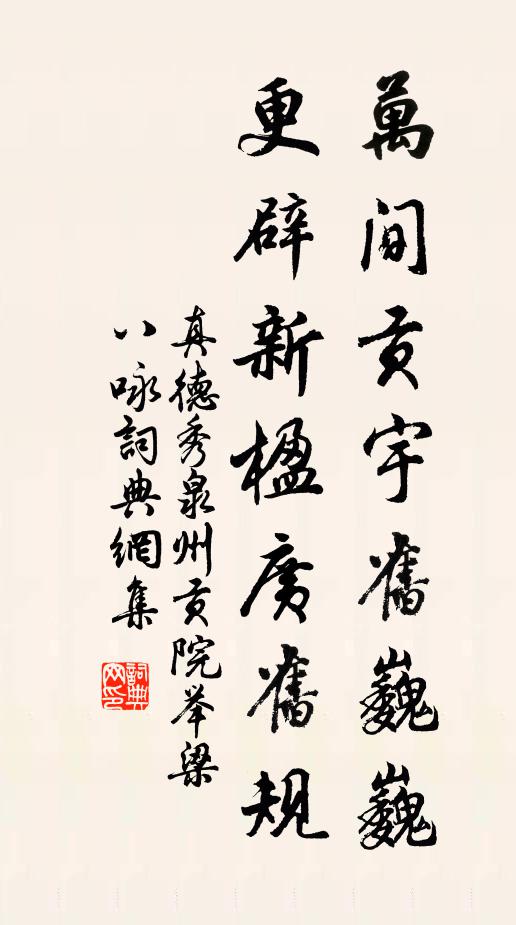 萬間貢宇舊巍巍
更辟新楹廣舊規
真德秀泉州貢院举梁
八咏詞典網集
詞典网印